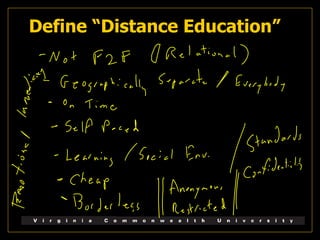 Define “Distance Education”
- Not F2F (Relational)
- Geographically Separate / Everybody
- On Time
- Self Paced
- Learning / Social Env.
/ Standards
- Cheap
Confidentiality
- Borderless || Anonymous ||
Restricted
Emotional /
Virginia Commonwealth University